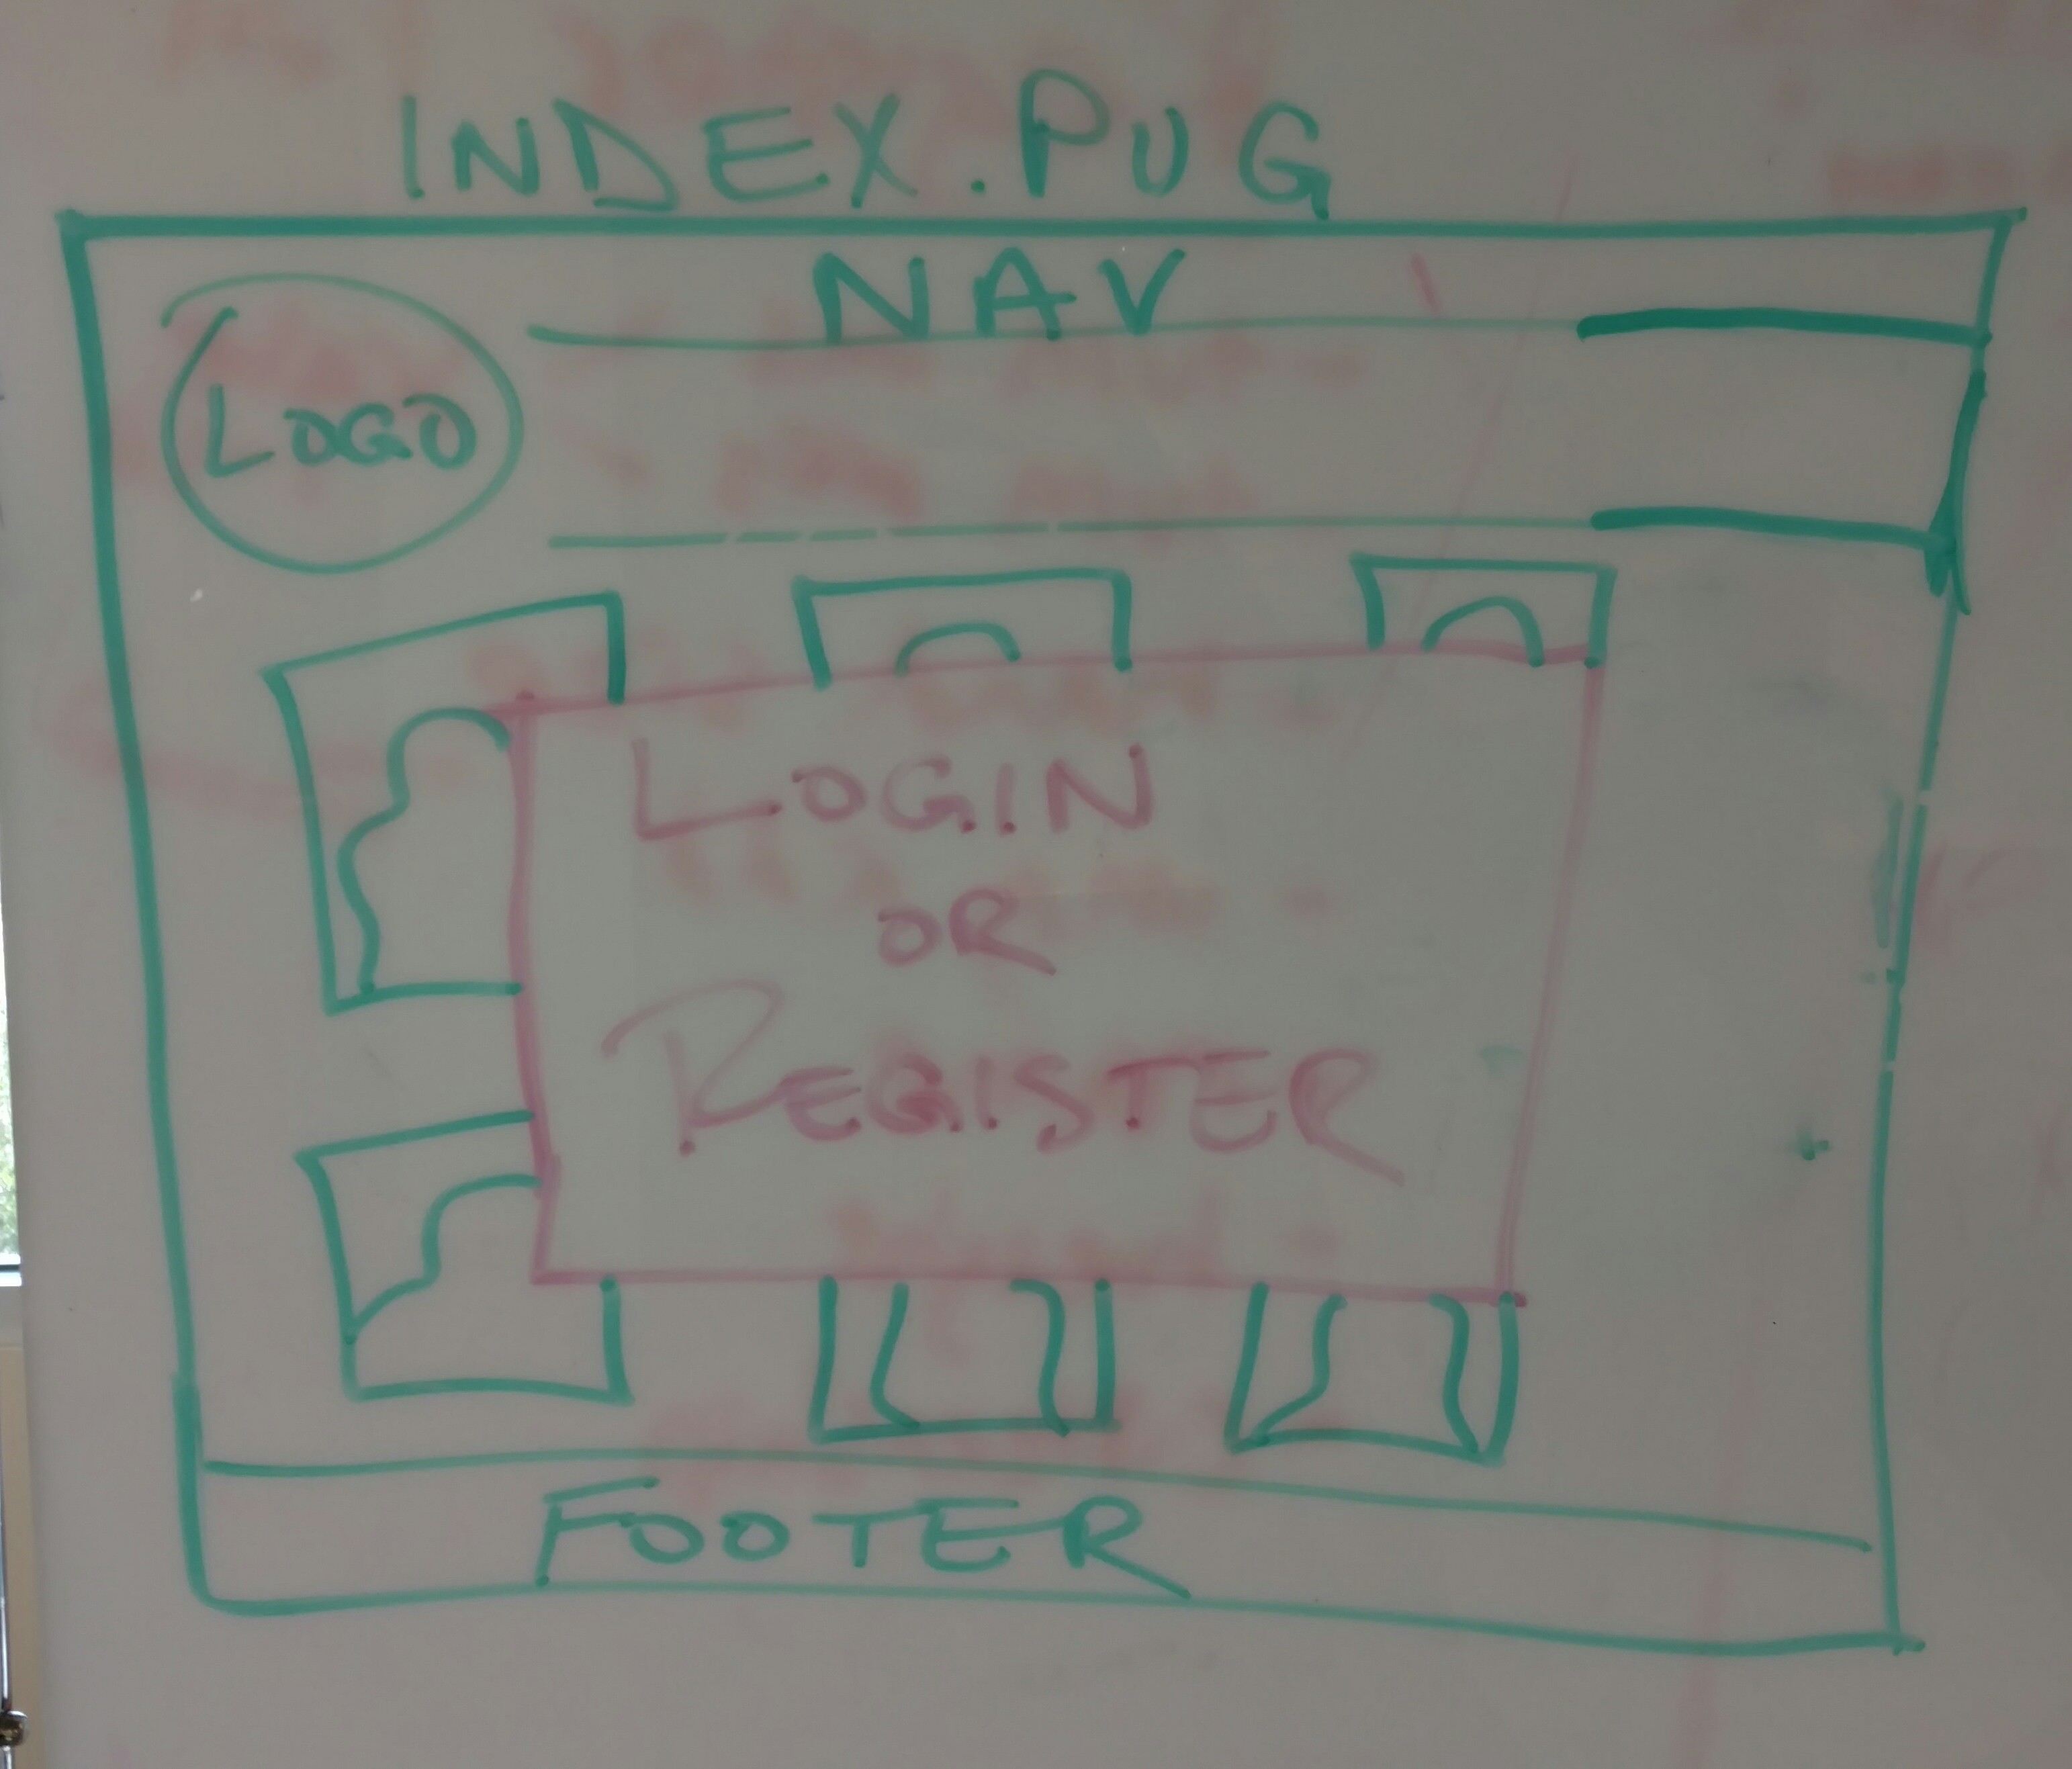 INDEX.PUG
NAV
LOGO
LOGIN
OR
REGISTER
FOOTER